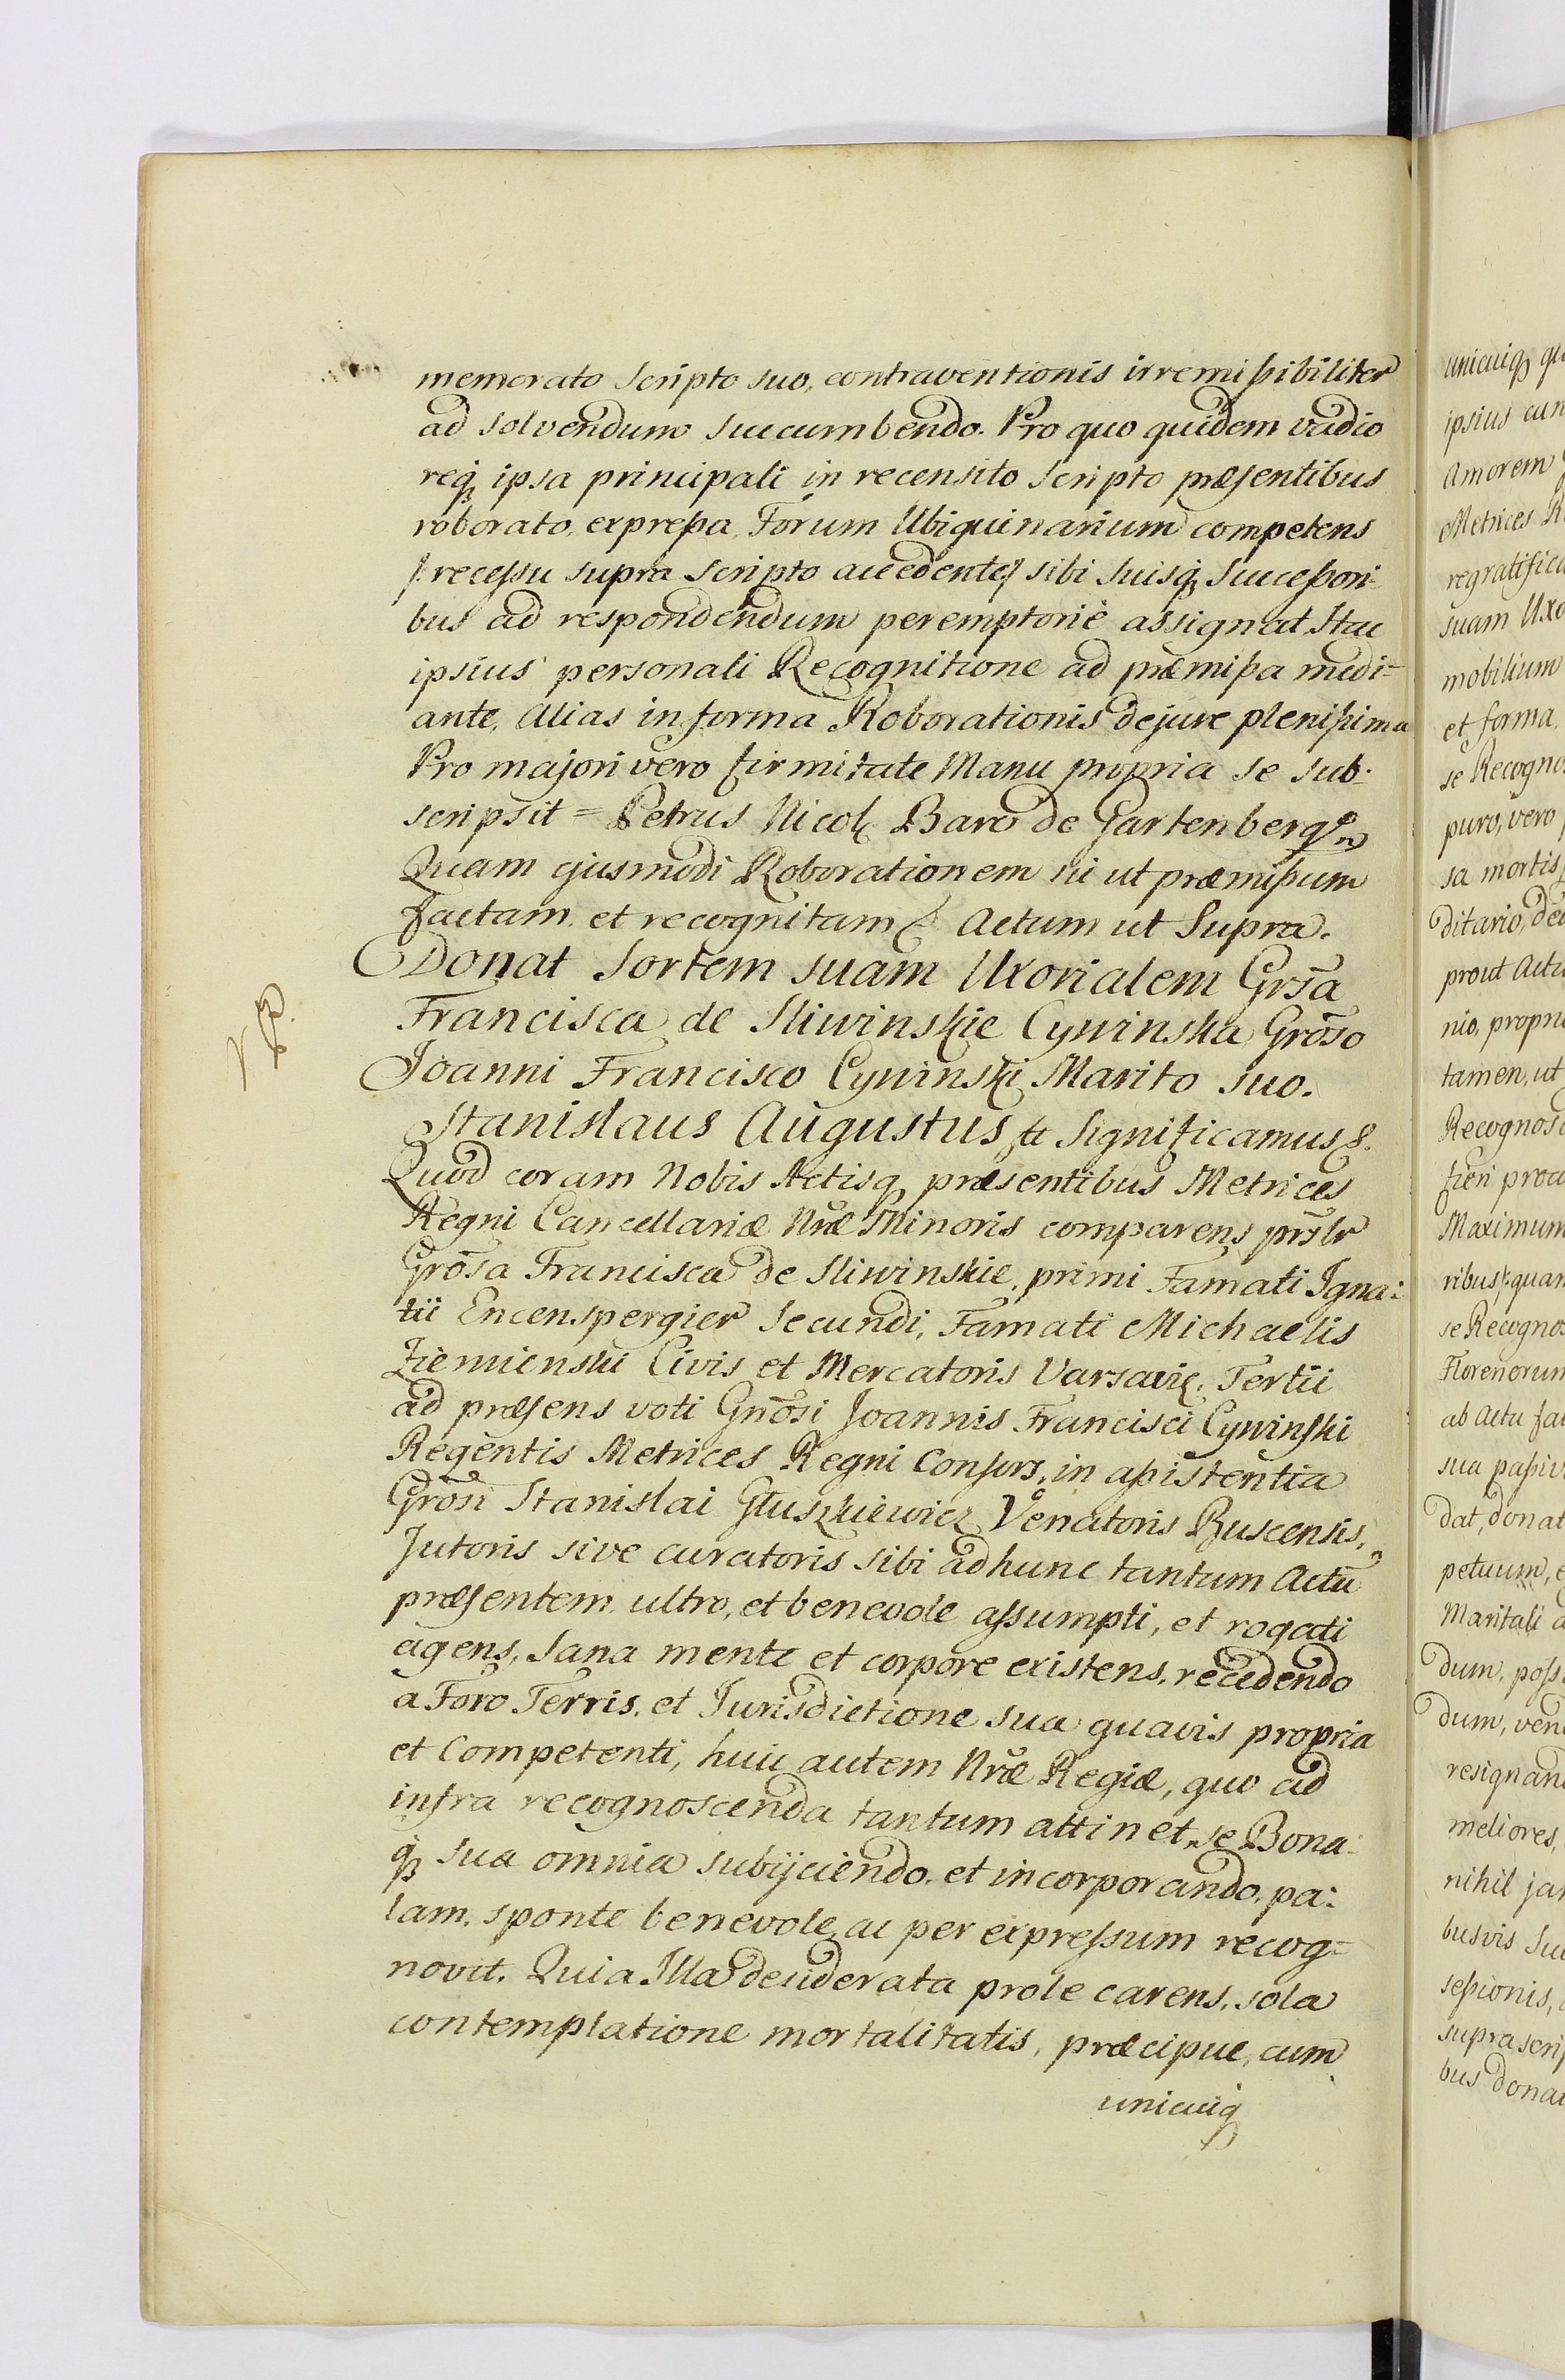 memorato Scripto suo, contraventionis irremißibiliter
ad solvendum succumbendo. Pro quo quidem vadio
req₃ ipsa principali in recensito Scripto præsentibus
roborato, expreßa, Forum Ubiquinarium competens
/: recessu supra scripto accedente :/ sibi suisq₃ Successori-
bus ad respondendum peremptoriè assignat. Stac
ipsius personali Recognitione ad præmißa medi=
ante, Alias in forma Roborationis de jure plenißima
Pro majori vero firmitate Manu propria se sub-
scripsit = Petrus Nicol, Baro de Gartenberg
Quam ejusmodi Roborationem sic ut præmißum
factam et recognitam & Actum ut Supra.
Donat Sortem suam Uxorialem Grsa
Francisca de Sliwinskie Cywinska Groso
Joanni Francisco Cywinski Marito suo.
Stanislaus Augustus & Significamus &.
Quod coram Nobis Actisq præsentibus Metrices
Regni Cancellariæ Nræ Minoris comparens prslr
Grosa Francisca de Sliwinskie, primi Famati Igna:
tii Encenspergier Secundi, Famati Michaelis
Ziemienski Civis et Mercatoris Varsavię, Tertii
ad præsens voti Gnosi Joannis Francisci Cywinski
Regentis Metrices Regni Consors, in aßistentia
Grosi Stanislai Głuszkiewicz Venatoris Buscensis,
Tutoris sive curatoris sibi ad hunc tantum Actū
præsentem ultro, et benevole assumpti, et rogati
agens, Sana mente et corpore existens, recedendo
a Foro Terris, et Jurisdictione sua quavis propria
et Competenti, huic autem Nræ Regiæ, quo ad
infra recognoscenda tantum attinet, se Bona:
q₃ sua omnia subijciendo, et incorporando, pa:
lam, sponte benevole, ac per expressum recog=
novit. Quia Illa desiderata prole carens, sola
contemplatione mortalitatis, præcipue, cum
unicuiq
unicuiq₃
ipsius
Amorem
Metrices
regratifica
suam Uxo
mobilium
et forma
se Recognos
puro, vero
sa mortis
ditario, ded
prout Actu
nio, propri
tamen, ut
Recognos
fieri procu
Maximum
ribus /: quam
se Recognos
Florenorum
ab Actu fa
sua paßiv
dat, donat
petuum, e
Maritali a
dum, poss
dum, ven
resignan
meliores,
nihil ja
busvis Su
seßionis,
supra scrip
bus dona